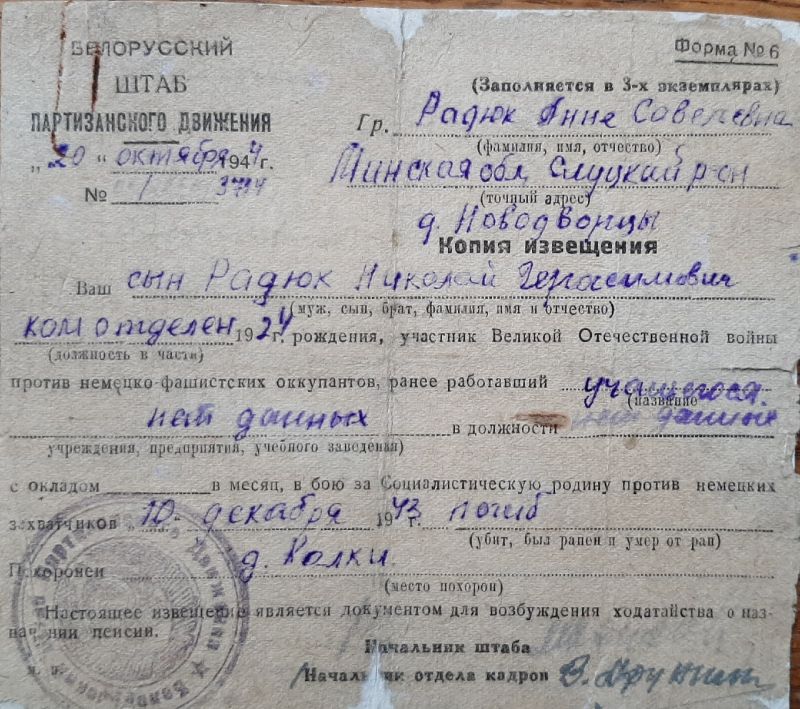 БЕЛОРУССКИЙ
ШТАБ
ПАРТИЗАНСКОГО ДВИЖЕНИЯ
„20“ октября 1944 г.
№ 3794
Форма № 6
(Заполняется в 3-х экземплярах)
Гр. Радюк Анне Савельевна
(фамилия, имя, отчество)
Минская обл, Слуцкий р-он
(точный адрес)
д. Новодворцы
Копия извещения
Ваш сын Радюк Николай Герасимович
(муж, сын, брат, фамилия, имя и отчество)
ком отделен 1924 г. рождения, участник Великой Отечественной войны
(должность в части)
против немецко-фашистских оккупантов, ранее работавший учащегося.
(название
нет данных в должности нет данные
учреждения, предприятия, учебного заведения)
с окладом в месяц, в бою за Социалистическую родину против немецких
захватчиков „10“ декабря 1943 г. погиб
(убит, был ранен и умер от ран)
Похоронен д. Колки.
(место похорон)
Настоящее извещение является документом для возбуждения ходатайства о наз-
начении пенсии.
Начальник штаба
Начальник отдела кадров